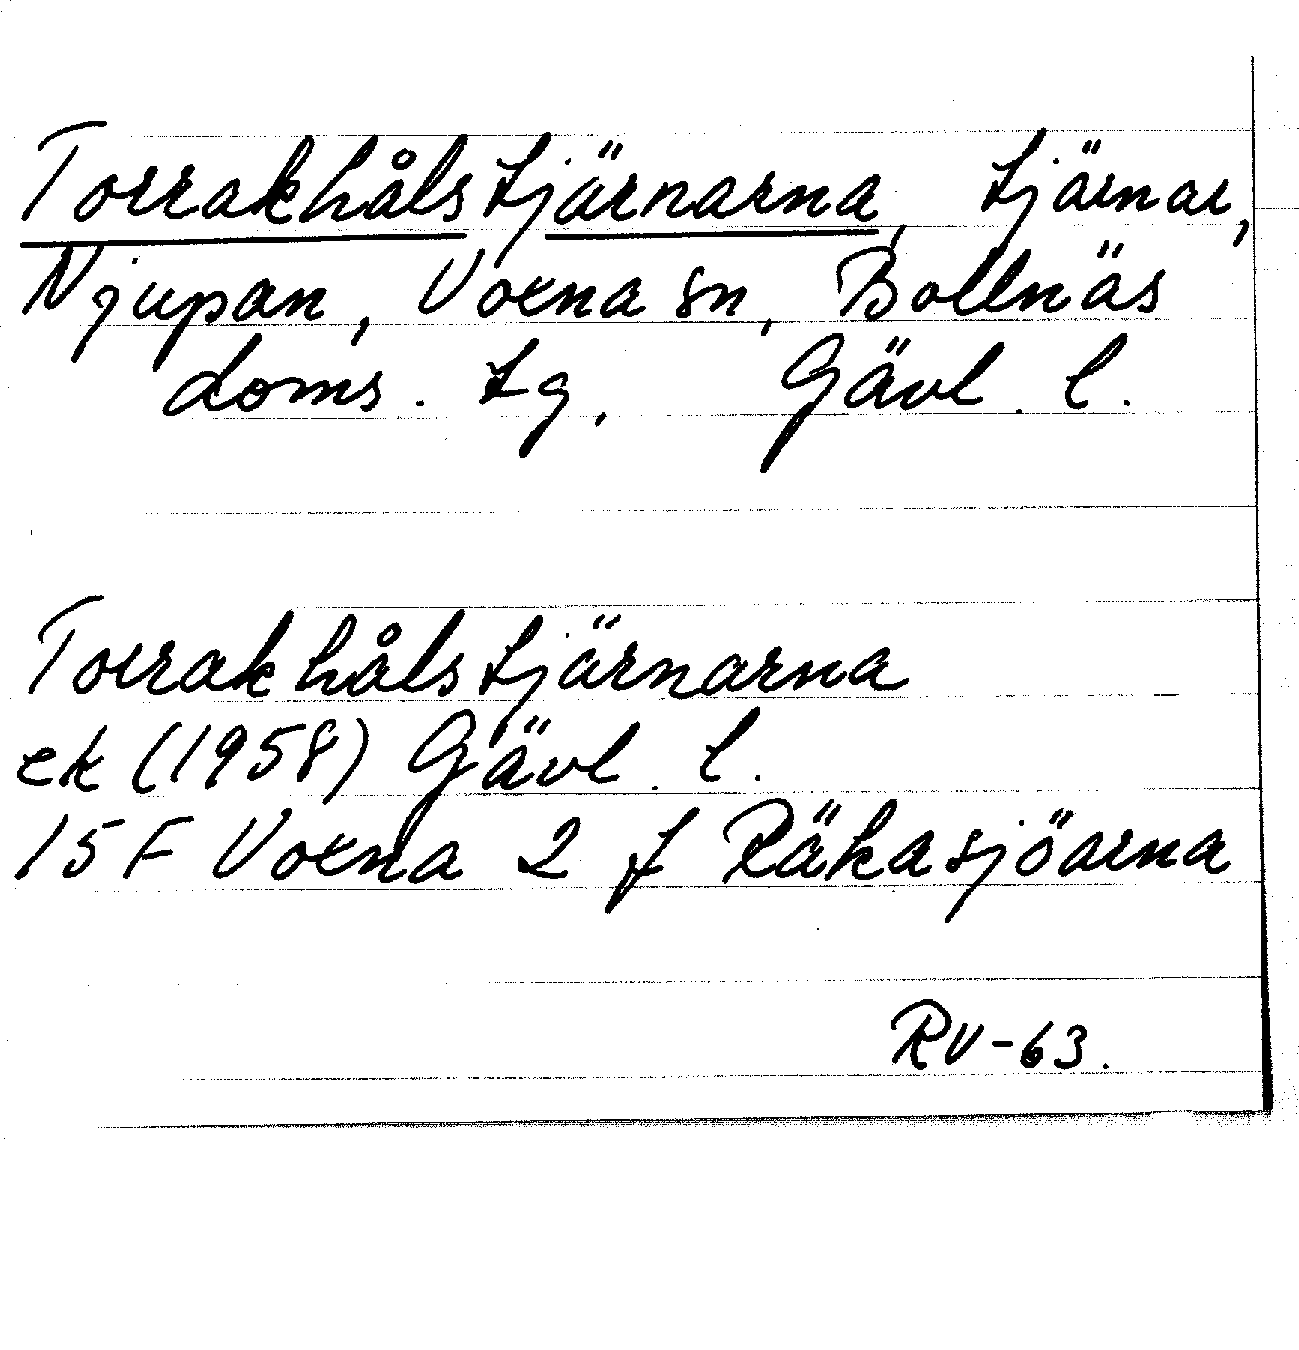 Torrakhålstjärnarna, tjärnar,
Njupan, Voxna sn, Bollnäs
doms. tg, Gävl. l.
Torrakhålstjärnarna
ek (1958) Gävl. l.
15 F Voxna 2 f Räkasjöarna
RV-63.